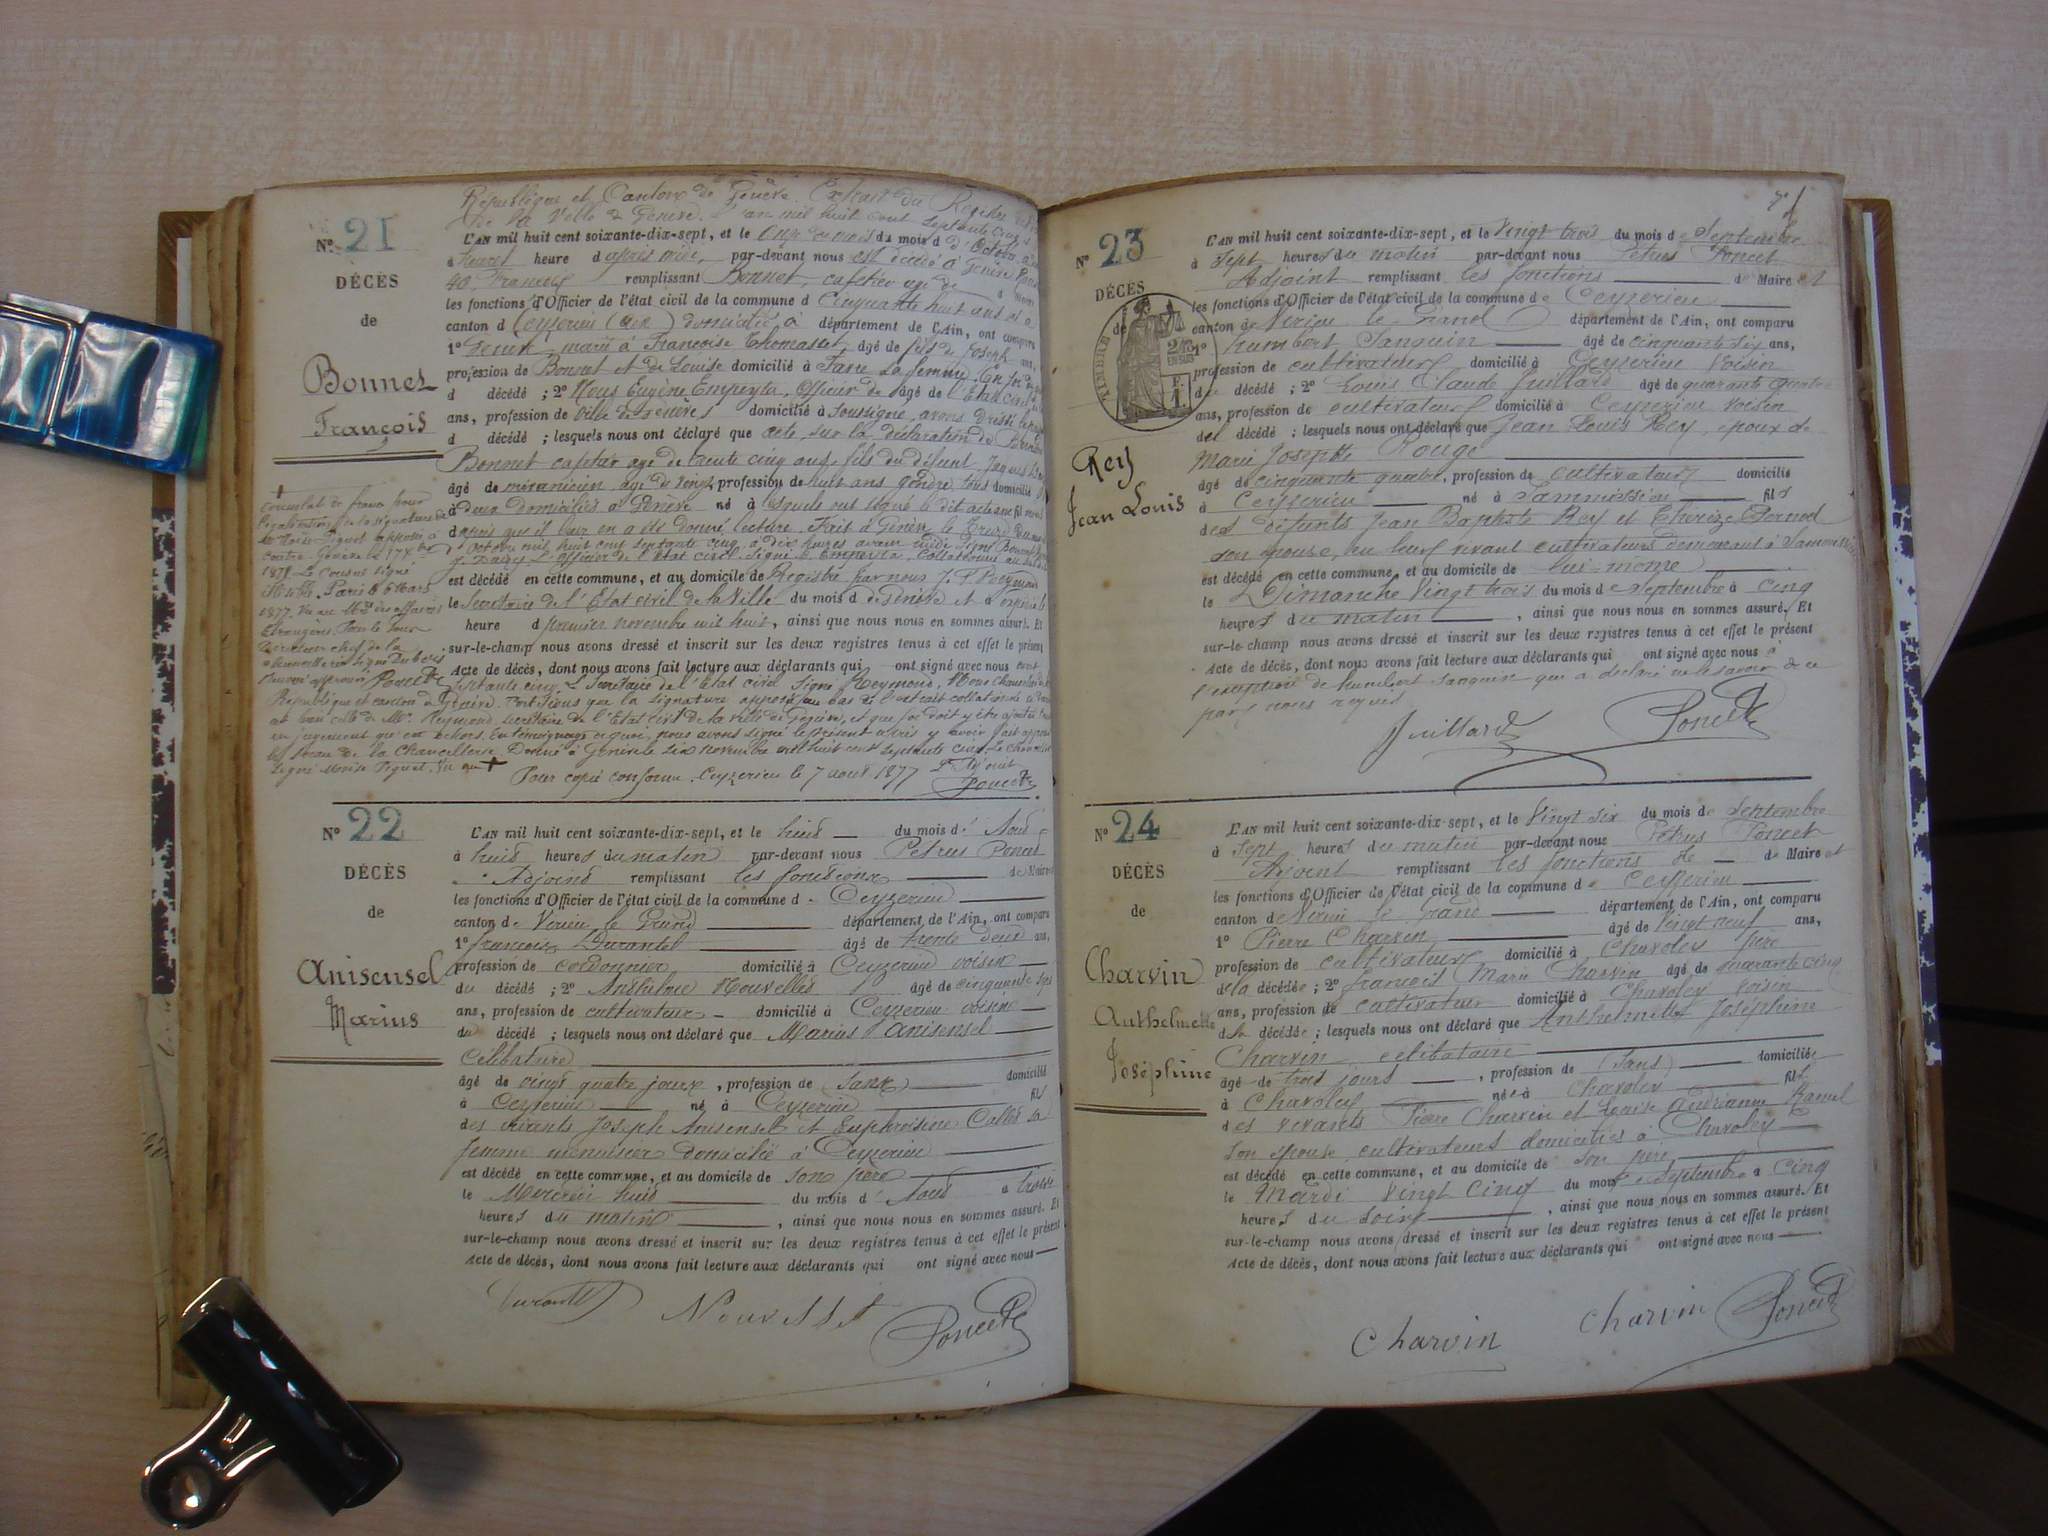 République et Canton de Genève. Extrait du Registre
de la Ville de Genève. L'an mil huit cent septante cinq
N° 21
L'AN mil huit cent soixante-dix-sept, et le onze du mois du mois d d'Octobre, à
à heure d après midi, par-devant nous est décédé à Genève
DÉCÈS
40. François remplissant Bonnet, cafetier âgé de
de
les fonctions d'Officier de l'état civil de la commune d Cinquante huit ans né à
canton d Ceyzerieu (Ain) domicilié à département de l'Ain, ont comparu
1° Genève, marié à Françoise Thomasset, âgé de fils de Joseph ans,
Bonnet
profession de Bonnet et de Louise domicilié à Favre La femme. En foi de
d décédé ; 2° Nous Eugène Empeyta, Officier de âgé de l'Etat civil de
François
ans, profession de Ville de Genève domicilié à Soussigné, avons dressé le
d décédé ; lesquels nous ont déclaré que acte, sur la déclaration de
Bonnet cafetier agé de trente cinq ans fils du défunt, Jaques
âgé de mécanicien agé de vingt profession de huit ans gendre, tous domicilié
à deux domiciliés à Genève né à lesquels ont signé le dit acte
d après que il leur en a été donné lecture. Fait à Genève le treize
d'Octobre mil huit cent septante cinq à dix heures avant midi signé Bonnet
L'Officier de l'état civil signé E. Empeyta. Collationné au
est décédé en cette commune, et au domicile de Registre par nous J. P. Reymond
le Secrétaire de l'Etat civil de la Ville du mois d de Genève et d
heure d premier novembre mil huit, ainsi que nous nous en sommes assuré. Et
sur-le-champ nous avons dressé et inscrit sur les deux registres tenus à cet effet le présent
Acte de décès, dont nous avons fait lecture aux déclarants qui ont signé avec nous cent
septante cinq. L. Secrétaire de l'état civil signé Reymond, Nous Chancelier de la
République et canton de Genève. Certifions que la signature apposée au bas de l'extrait collationné
est bien celle de Mr. Reymond, secrétaire de l'Etat civil de la ville de Genève, et que foi doit y être ajoutée
en jugement que en dehors. En témoignage de quoi, nous avons signé le présent après y avoir fait apposer
le sceau de la Chancellerie. Donné à Genève le six novembre mil huit cent septante cinq. Le chancelier
signé Moïse Piguet. Vu au +
+
Consulat de France pour
légalisation de la signature de
Mr Moïse Piguet apposée ci
contre. Genève le
Le Consul signé
Paris le 6 Mars
1877. Vu au Mre des affaires
Etrangères. Pour le Sous
Directeur chef de la
chancellerie signé Dubois
Poncet
Pour copie conforme. Ceyzerieu le 7 aout 1877
Poncet
N° 22
L'AN mil huit cent soixante-dix-sept, et le huit du mois d' Aout
à huit heures du matin par-devant nous Petrus Poncet
DÉCÈS
Adjoint remplissant les fonctions de Maire
les fonctions d'Officier de l'état civil de la commune d Ceyzerieu
de
canton de Virieu le Grand département de l'Ain, ont comparu
1° françois Durantel âgé de trente deux ans,
Anisensel
profession de cordonnier domicilié à Ceyzerieu voisin
du décédé ; 2° Anthelme Nouvelle âgé de cinquante sept
Marius
ans, profession de cultivateur domicilié à Ceyzerieu voisin
du décédé ; lesquels nous ont déclaré que Marius Anisensel
célibataire
âgé de vingt quatre jours, profession de sans domicilié
à Ceyzerieu né à Ceyzerieu fils
des vivants Joseph Anisensel et Euphroisine Callet sa
femme menuisier domicilié à Ceyzerieu
est décédé en cette commune, et au domicile de son père
le Mercredi huit du mois d' Aout à trois
heures du matin, ainsi que nous nous en sommes assuré. Et
sur-le-champ nous avons dressé et inscrit sur les deux registres tenus à cet effet le présent
Acte de décès, dont nous avons fait lecture aux déclarants qui ont signé avec nous
Durantel Nouvelle Poncet
N° 23
L'AN mil huit cent soixante-dix-sept, et le Vingt trois du mois de Septembre
à Sept heures du matin par-devant nous Petrus Poncet
DÉCÈS
Adjoint remplissant les fonctions de Maire et
les fonctions d'Officier de l'état civil de la commune de Ceyzerieu
de
canton de Virieu le Grand département de l'Ain, ont comparu
TIMBRE
2/10 EN SUS
F. 1.
1° humbert Sanguin âgé de cinquante six ans,
profession de cultivateur domicilié à Ceyzerieu voisin
du décédé ; 2° Louis Claude Juillard âgé de quarante quatre
ans, profession de cultivateur domicilié à Ceyzerieu voisin
du décédé ; lesquels nous ont déclaré que Jean Louis Rey, époux de
Rey
Jean Louis
Marie Josephte Rouge
âgé de cinquante quatre, profession de cultivateur domicilié
à Ceyzerieu né à Sammission fils
des défunts Jean Baptiste Rey et Thérèze Pernod
son épouse, en leurs vivant cultivateurs demeurant à Sammission
est décédé en cette commune, et au domicile de lui-même
le Dimanche Vingt trois du mois de septembre à cinq
heures du matin, ainsi que nous nous en sommes assuré. Et
sur-le-champ nous avons dressé et inscrit sur les deux registres tenus à cet effet le présent
Acte de décès, dont nous avons fait lecture aux déclarants qui ont signé avec nous à
l'exception de humbert Sanguin que a déclaré ne le savoir de ce
par nous requis
Juillard Poncet
N° 24
L'AN mil huit cent soixante-dix-sept, et le Vingt six du mois de Septembre
à Sept heures du matin par-devant nous Petrus Poncet
DÉCÈS
Adjoint remplissant les fonctions de de Maire et
les fonctions d'Officier de l'état civil de la commune de Ceyzerieu
de
canton de Virieu le Grand département de l'Ain, ont comparu
1° Pierre Charvin âgé de vingt neuf ans,
Charvin
profession de cultivateur domicilié à Chavoley père
de la décédée ; 2° françois Marie Charvin âgé de quarante cinq
Anthelmette
ans, profession de cultivateur domicilié à Chavoley voisin
de la décédée ; lesquels nous ont déclaré que Anthelmette Joséphine
Joséphine
Charvin célibataire
âgé de trois jours, profession de (sans) domiciliée
à Chavoley née à Chavoley fille
des vivants Pierre Charvin et Louise Andrianne Ramel
son épouse cultivateurs domiciliés à Chavoley
est décédé en cette commune, et au domicile de son père
le Mardi vingt cinq du mois de septembre à cinq
heures du soir, ainsi que nous nous en sommes assuré. Et
sur-le-champ nous avons dressé et inscrit sur les deux registres tenus à cet effet le présent
Acte de décès, dont nous avons fait lecture aux déclarants qui ont signé avec nous
Charvin Charvin Poncet